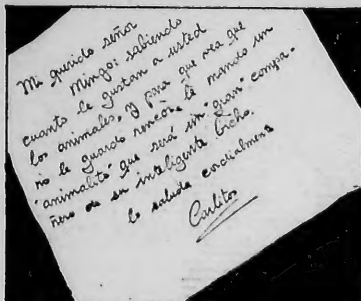 Mi querido señor
Mingo: sabiendo
cuanto le gustan a usted
los animales, y para que vea que
no le guardo rencor, le mando un
"animalito" que será un "gran" compa-
ñero de su inteligente bicho.
lo saluda cordialmente
Carlitos